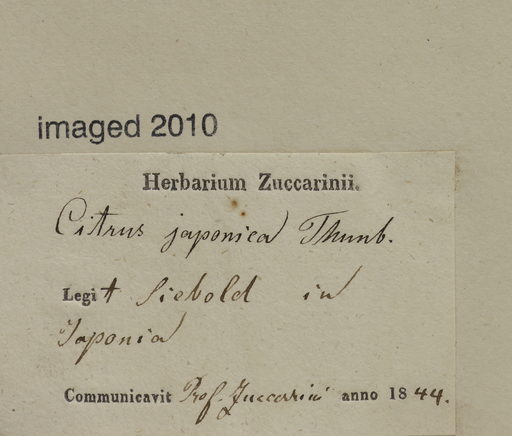 imaged 2010
Herbarium Zuccarinii.
Citrus japonica Thunb.
Legit Siebold in
Japonia
Communicavit Prof. Zuccarini anno 1844.